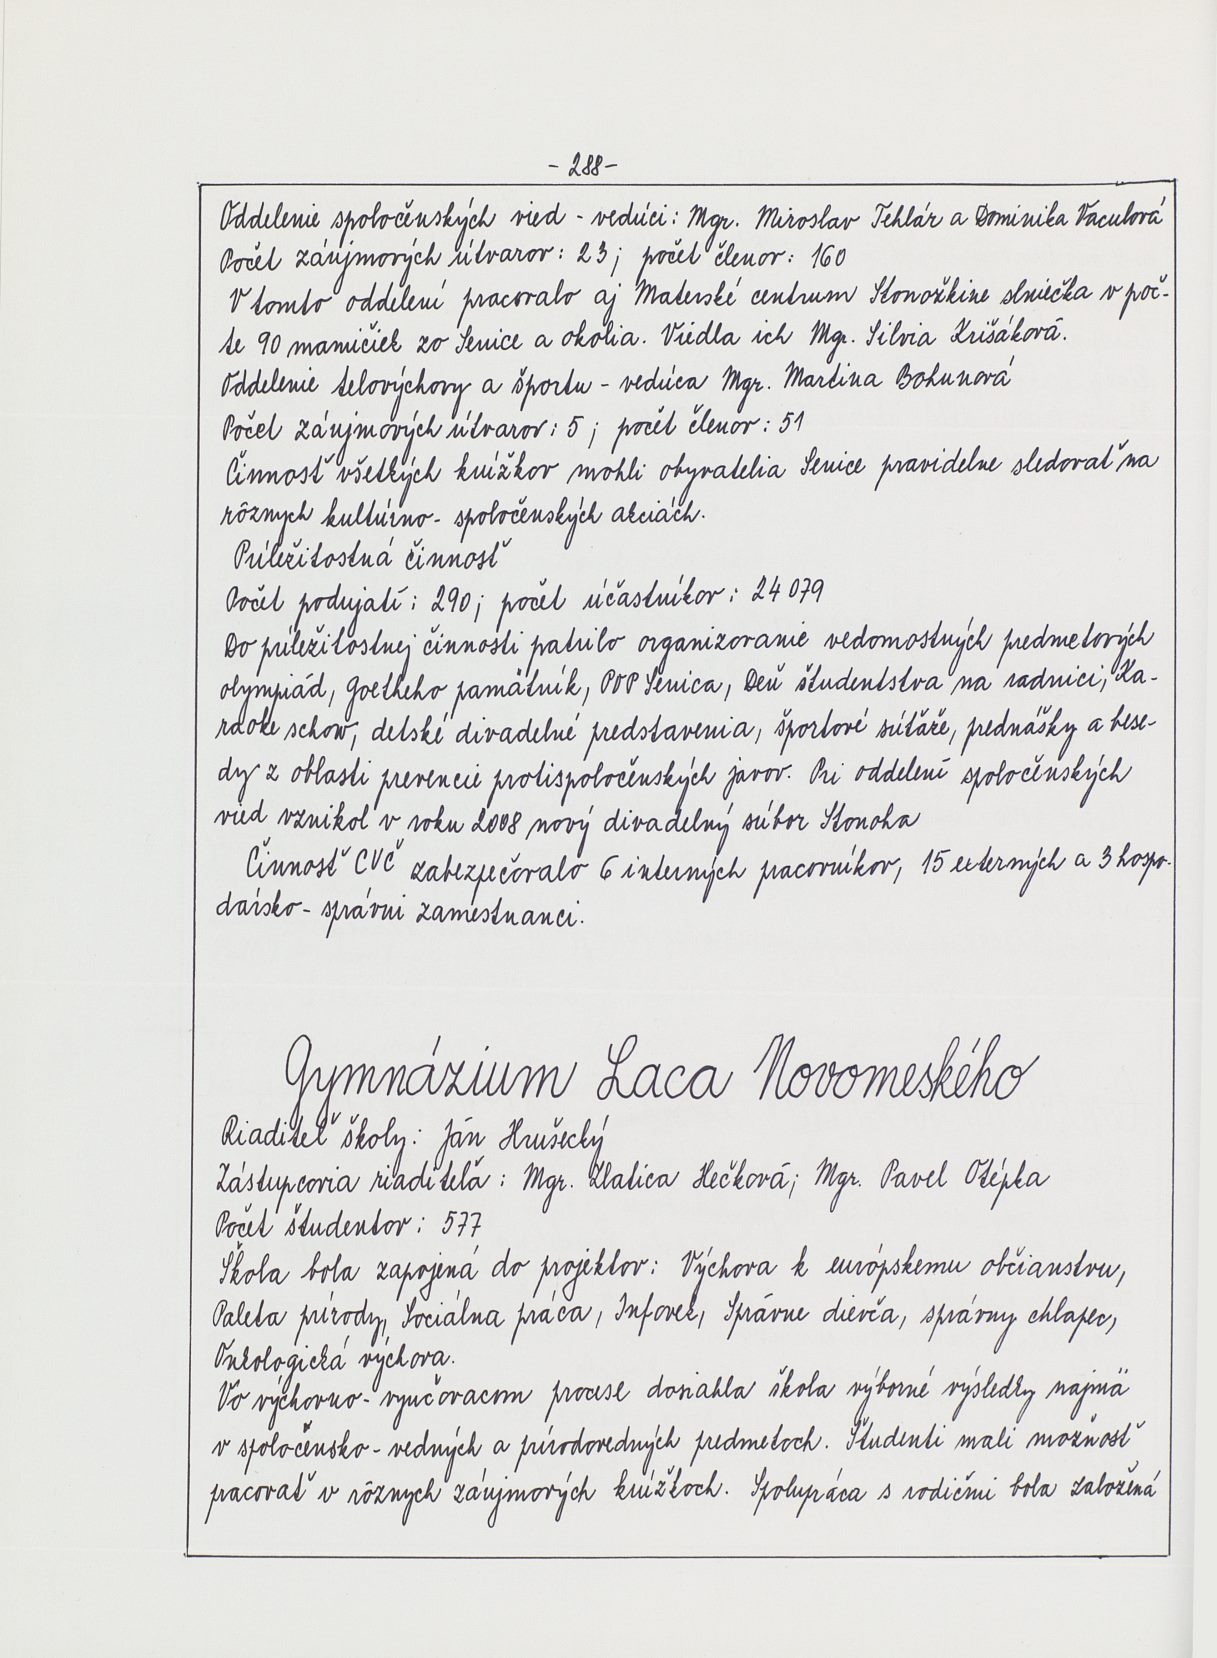 - 288 -
Oddelenie spoločenských vied - vedúci: Mgr. Miroslav Tehlár a Dominika Vaculová
Počet záujmových útvarov: 23; počet členov: 160
V tomto oddelení pracovalo aj Materské centrum Stonožkine slniečka v poč-
te 90 mamičiek zo Senice a okolia. Viedla ich Mgr. Silvia Krišáková.
Oddelenie telovýchovy a športu - vedúca Mgr. Martina Bohunová
Počet záujmových útvarov: 5; počet členov: 51
Činnosť všetkých krúžkov mohli obyvatelia Senice pravidelne sledovať na
rôznych kultúrno- spoločenských akciách.
Príležitostná činnosť
Počet podujatí: 290; počet účastníkov: 24 079
Do príležitostnej činnosti patrilo organizovanie vedomostných predmetových
olympiád, Goetheho pamätník, POP Senica, Deň študentstva na radnici, Ka-
raoke schow, detské divadelné predstavenia, športové súťaže, prednášky a bese-
dy z oblasti prevencie protispoločenských javov. Pri oddelení spoločenských
vied vznikol v roku 2008 nový divadelný súbor Stonoha
Činnosť CVČ zabezpečovalo 6 interných pracovníkov, 15 externých a 3 hospo-
dársko- správni zamestnanci.
Gymnázium Laca Novomeského
Riaditeľ školy: Ján Hrušecký
Zástupcovia riaditeľa: Mgr. Zlatica Hečková; Mgr. Pavel Otépka
Počet študentov: 577
Škola bola zapojená do projektov: Výchova k európskemu občianstvu,
Paleta prírody, Sociálna práca, Infovek, Správne dievča, správny chlapec,
Onkologická výchova.
Vo výchovno- vyučovacom procese dosiahla škola výborné výsledky najmä
v spoločensko- vedných a prírodovedných predmetoch. Študenti mali možnosť
pracovať v rôznych záujmových krúžkoch. Spolupráca s rodičmi bola založená